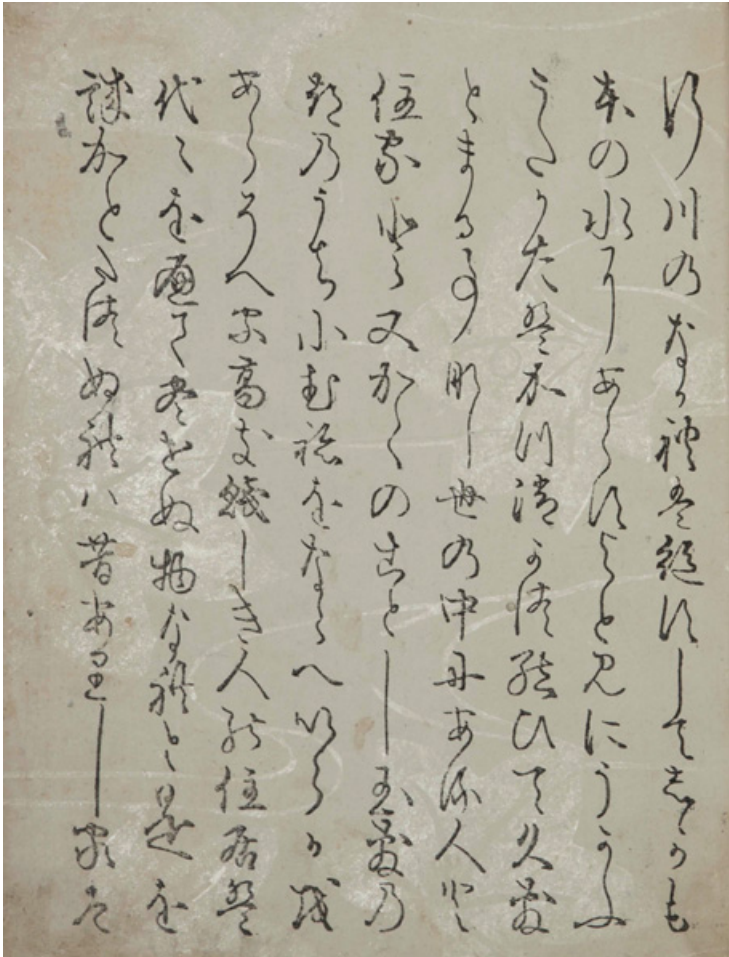 行川のなかれは絶すしてしかも
本の水にあらすよとみにうかふ
うたかたはかつ消かつ結ひて久敷
とまる事なし世の中にある人と
住家と又かくのことし玉敷の
都のうちにむねをならへいらかを
あらそへる高き賤しき人の住居は
代々をへてつきせぬ物なれと是を
誠かとたつぬれは昔ありし家は